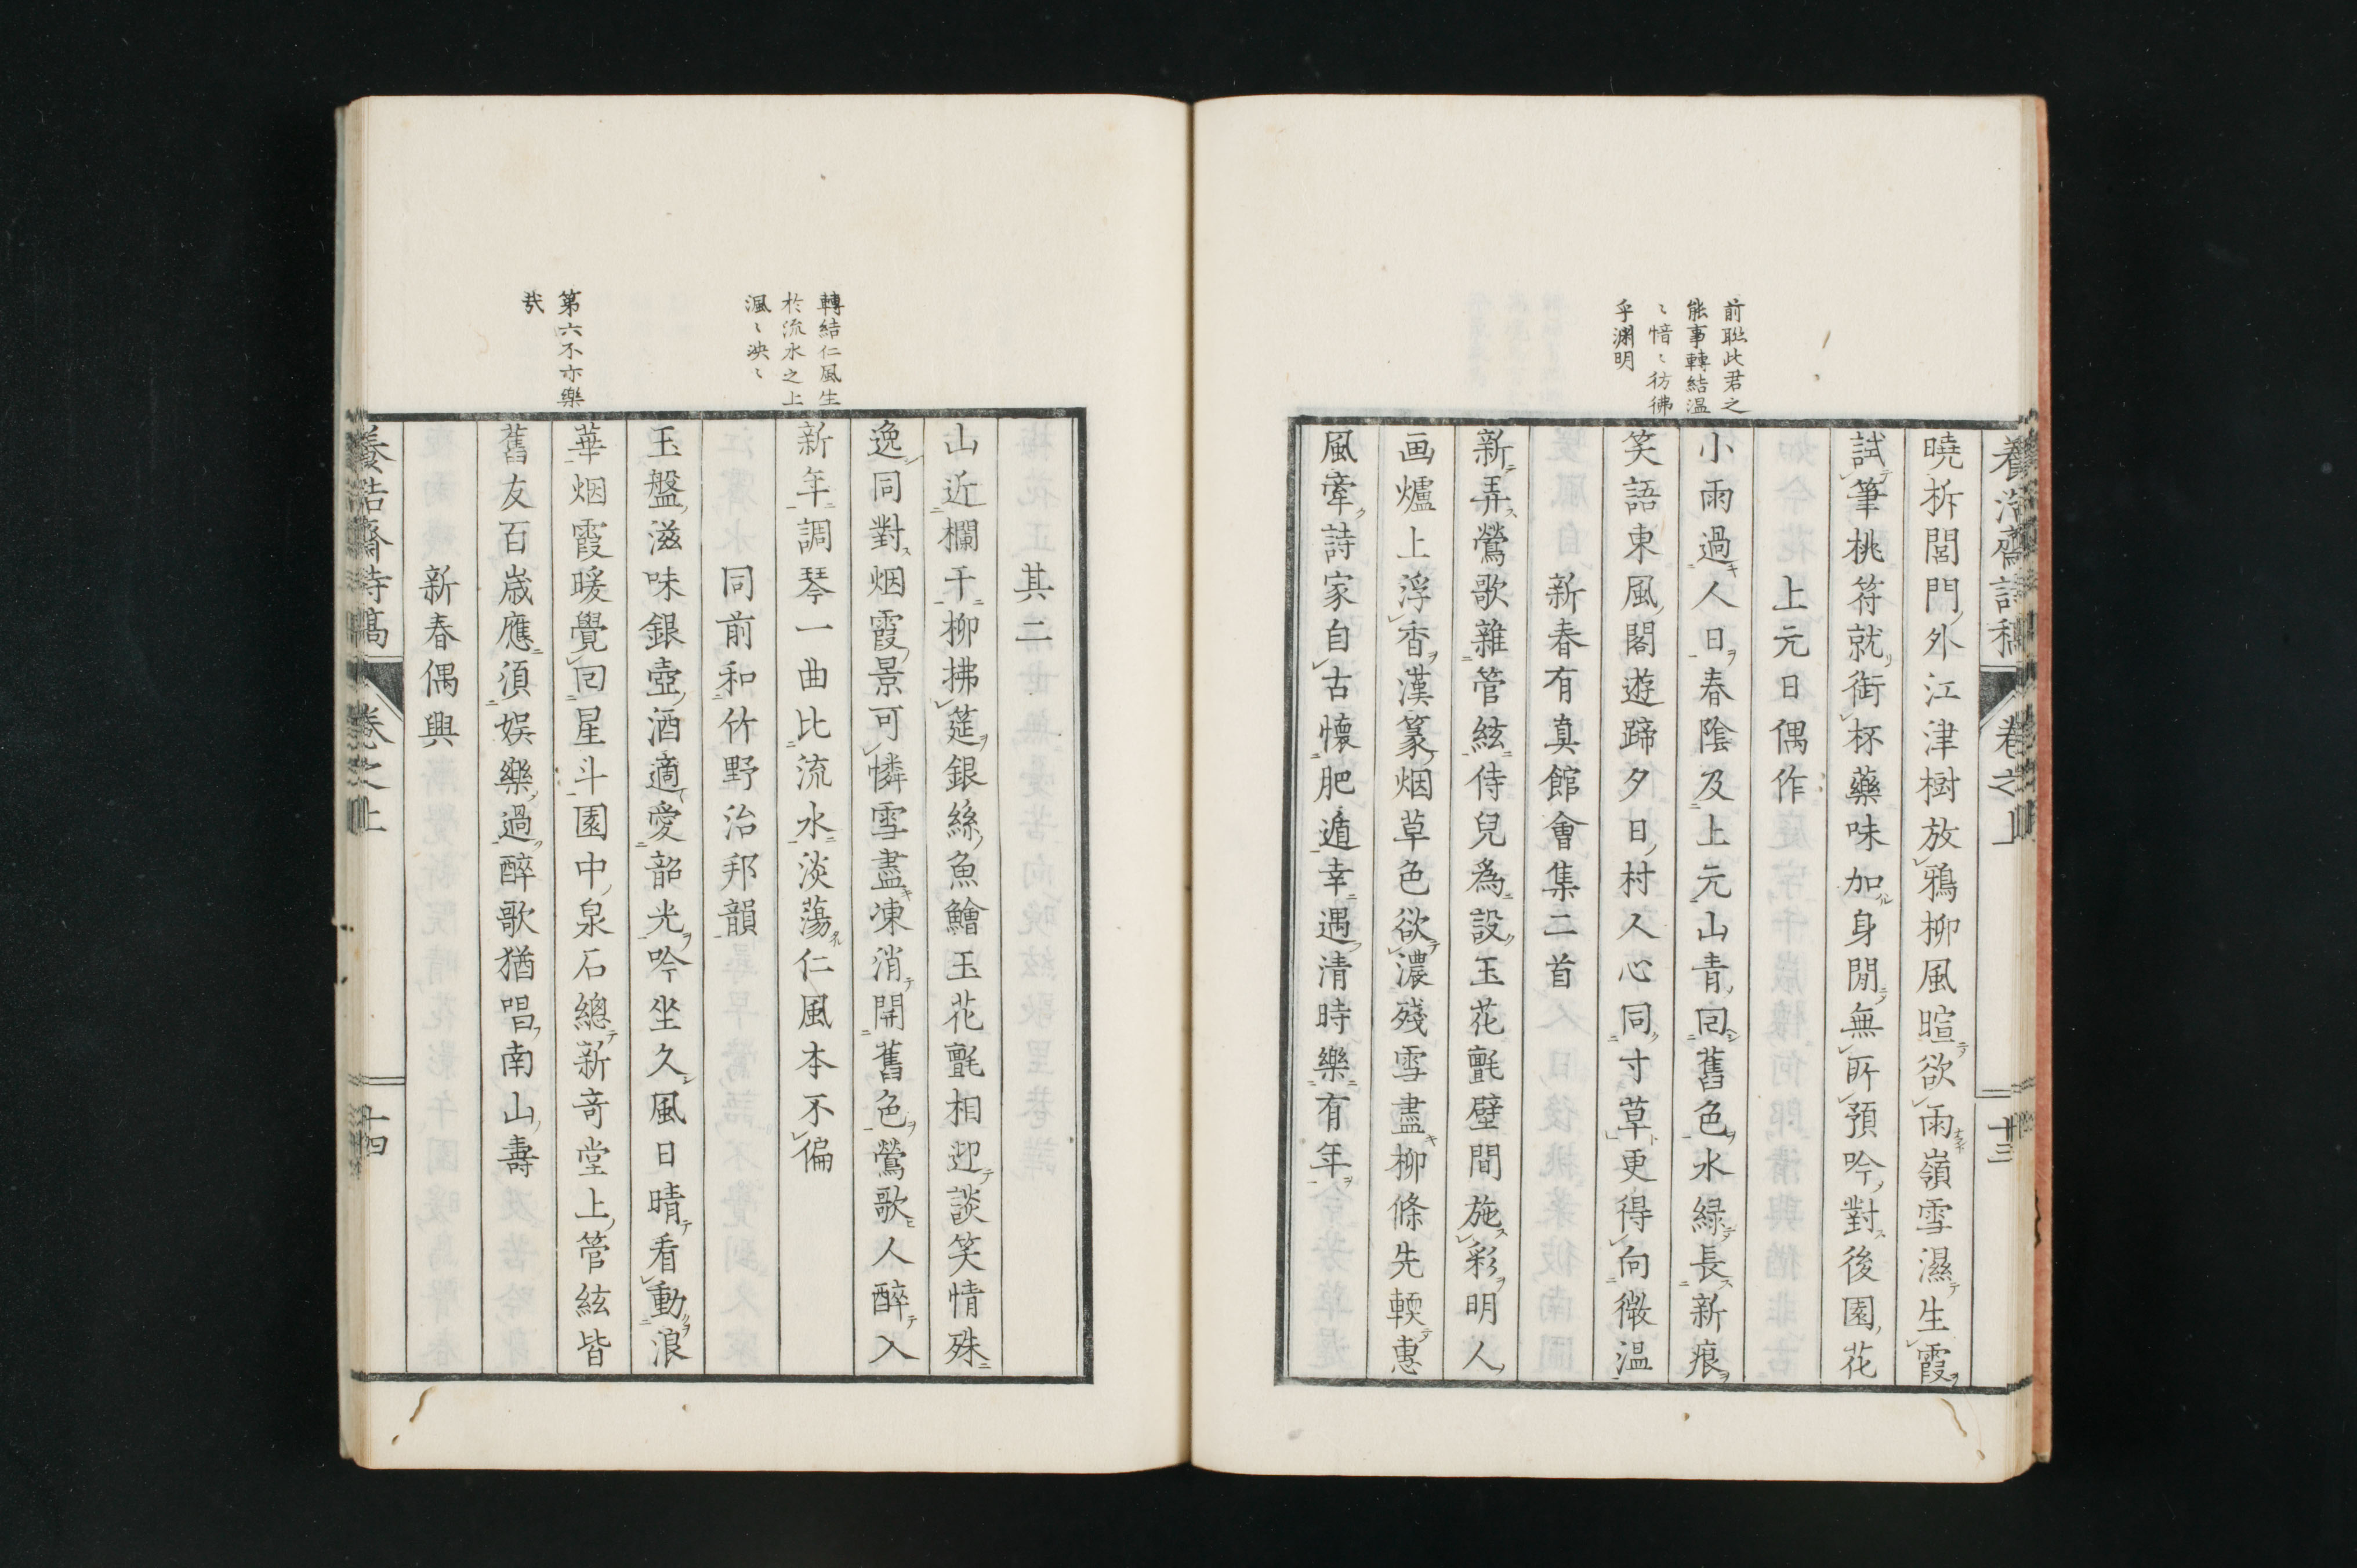 養浩齋詩稿 卷之上 十三
曉柝閭門外江津樹放鴉柳風暄欲雨嶺雪濕生霞
試筆桃符就銜杯藥味加身閒無所預吟對後園花
上元日偶作
小雨過人日春陰及上元山青回舊色水綠長新痕
笑語東風閣遊蹄夕日村人心同寸草更得向微温
新春有真館會集二首
新弄鶯歌雜管絃侍兒爲設玉花氈壁間施彩明人
画爐上浮香漢篆烟草色欲濃殘雪盡柳條先輭惠
風牽詩家自古懷肥遁幸遇清時樂有年
前聮此君之
能事轉結温
〻愔〻彷彿
乎渊明
其二
山近欄干柳拂筵銀絲魚鱠玉花氈相迎談笑情殊
逸同對烟霞景可憐雪盡凍消開舊色鶯歌人醉入
新年調琴一曲比流水淡蕩仁風本不偏
同前和竹野治邦韻
玉盤滋味銀壺酒適愛韶光吟坐久風日晴看動浪
華烟霞暖覺回星斗園中泉石總新奇堂上管絃皆
舊友百歳應須娯樂過醉歌猶唱南山壽
新春偶興
轉結仁風生
於流水之上
渢〻泱〻
第六不亦樂
哉
養浩齋詩稿 卷之上 十四